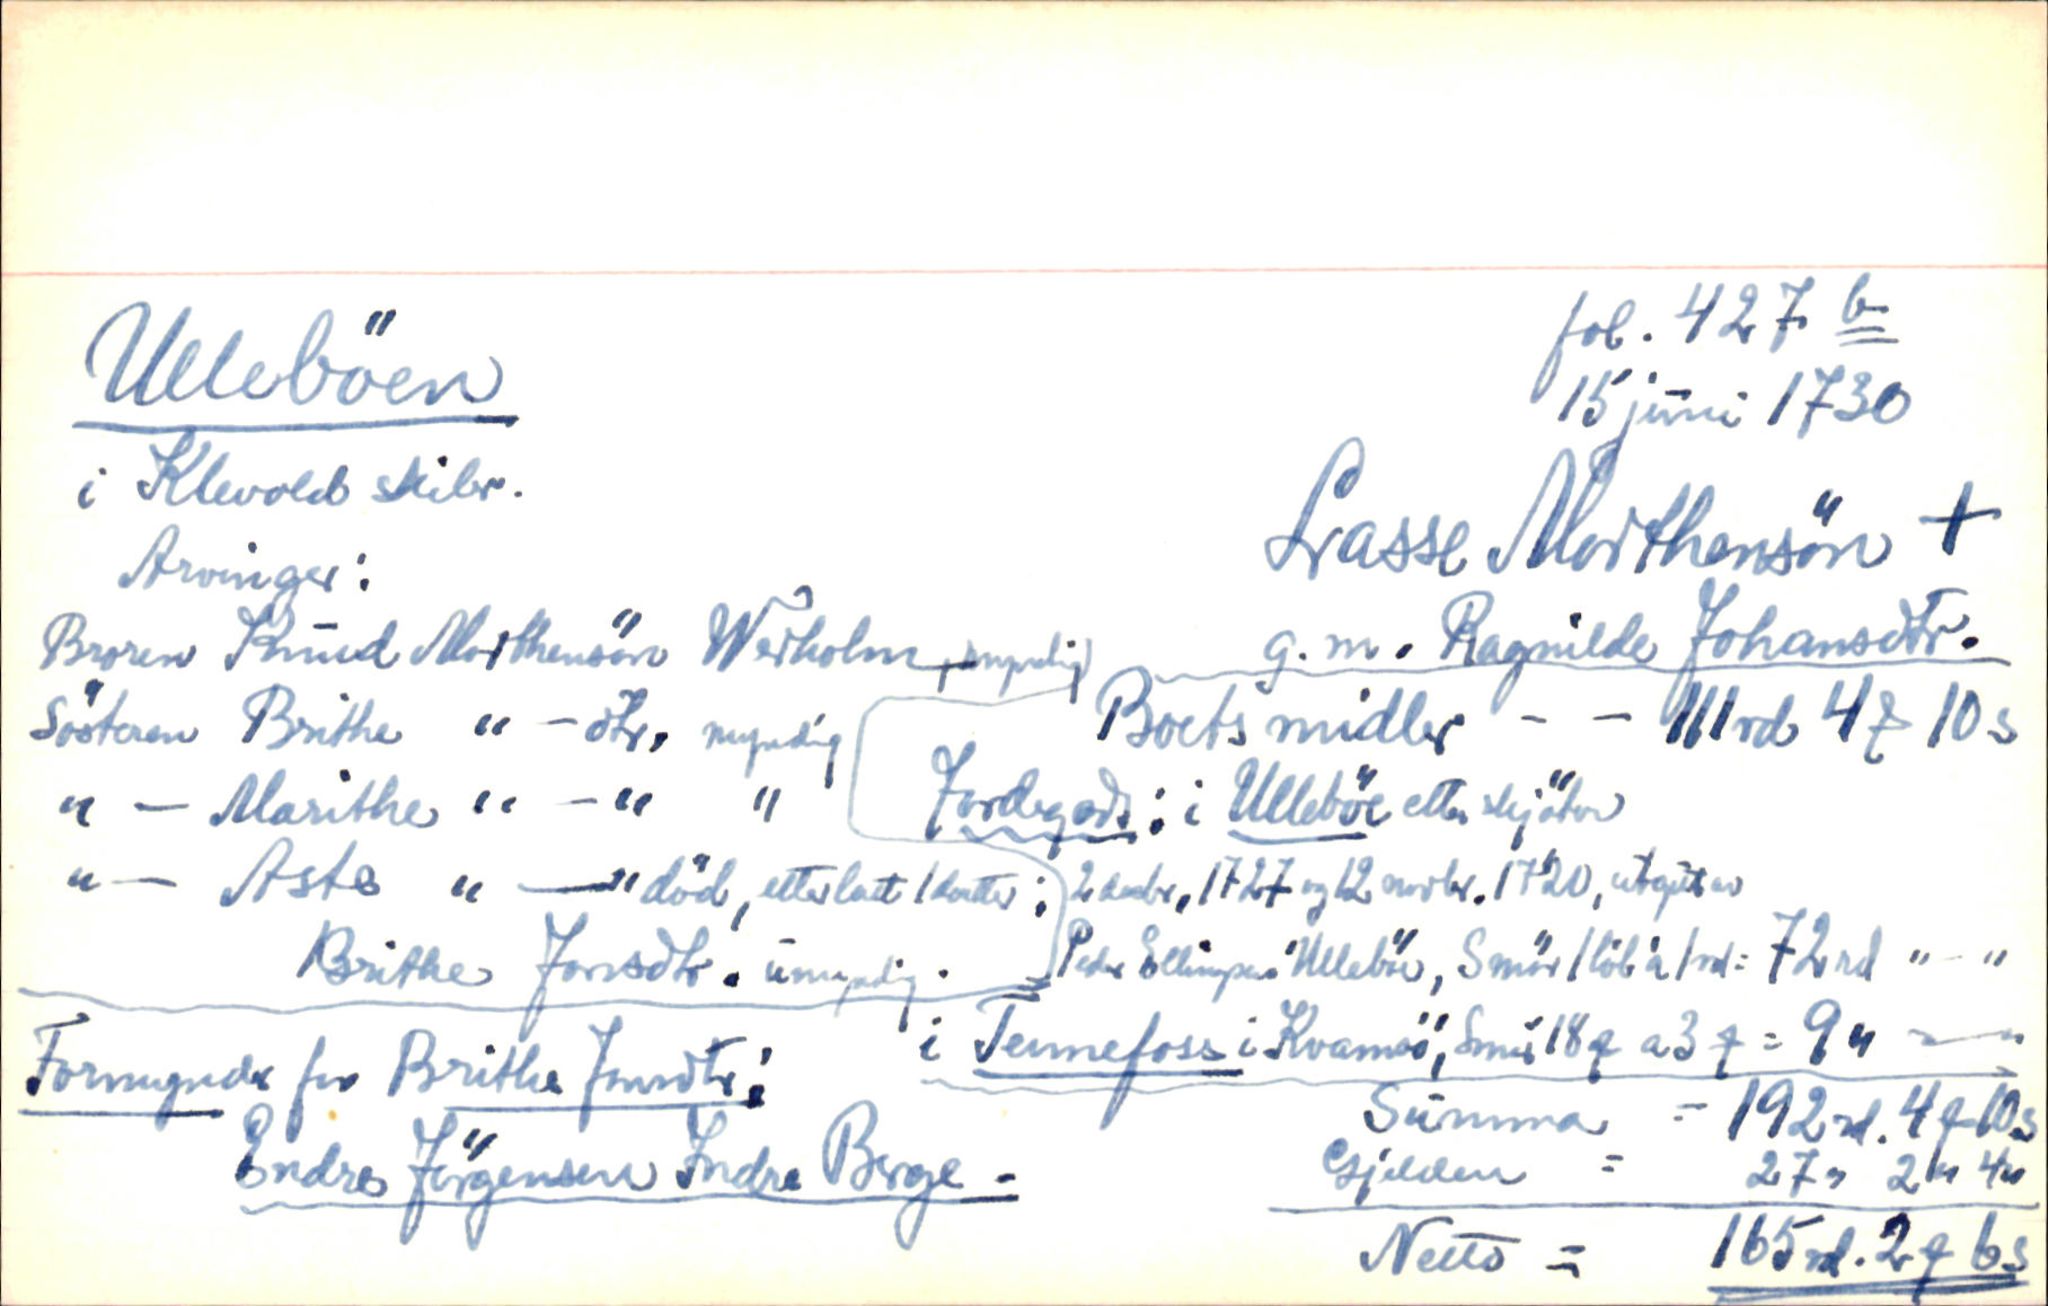 fol. 427 b
15 juni 1730
Ullebøen
i Klevold skibr.
Lasse Morthensön +
g. m. Ragnilde Johansdtr.
Arvinger:
Broren Knud Morthensön Werholm, myndig
Søsteren Brithe " - dtr, myndig
" - Marithe " - " "
" - Aste " - " död, etterlatt 1 datter:
Brithe Jonsdtr. umyndig.
Formynder for Brithe Jonsdtr:
Endre Jörgensen Indre Berge -
Boets midler - - 111 rd 4 q 10 s
Jordegods: i Ullebøe etter skjöter
2 decbr. 1727 og 12 novbr. 1720, utgitt av
Peder Ellingsen Ullebøe, Smör 1 löb à 1 rd = 72 rd " - "
i Tennefoss i Kvamsö, Smör 18 q a 3 q = 9 " " - "
Summa = 192 rd. 4 q 10 s
Gjelden = 27 " 2 " 4 "
Netto = 165 rd. 2 q 6 s